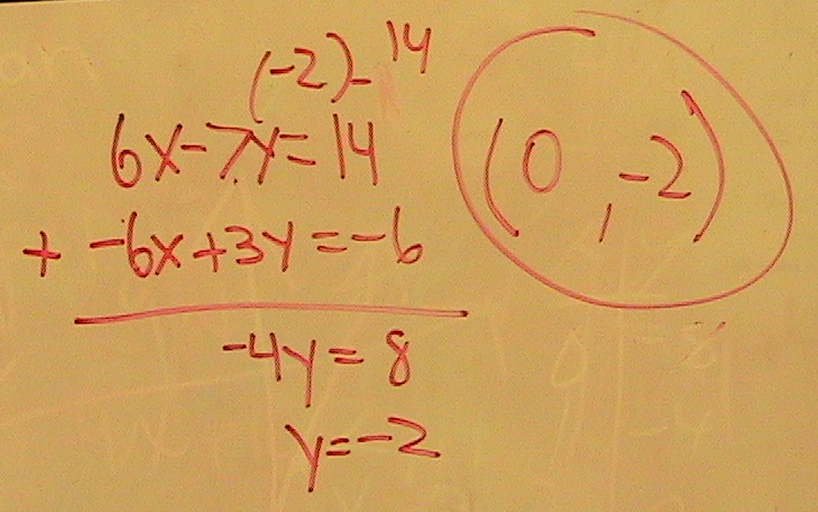 (-2)-14
6x-7y=14
(0, -2)
+ -6x+3y=-6
-4y=8
y=-2